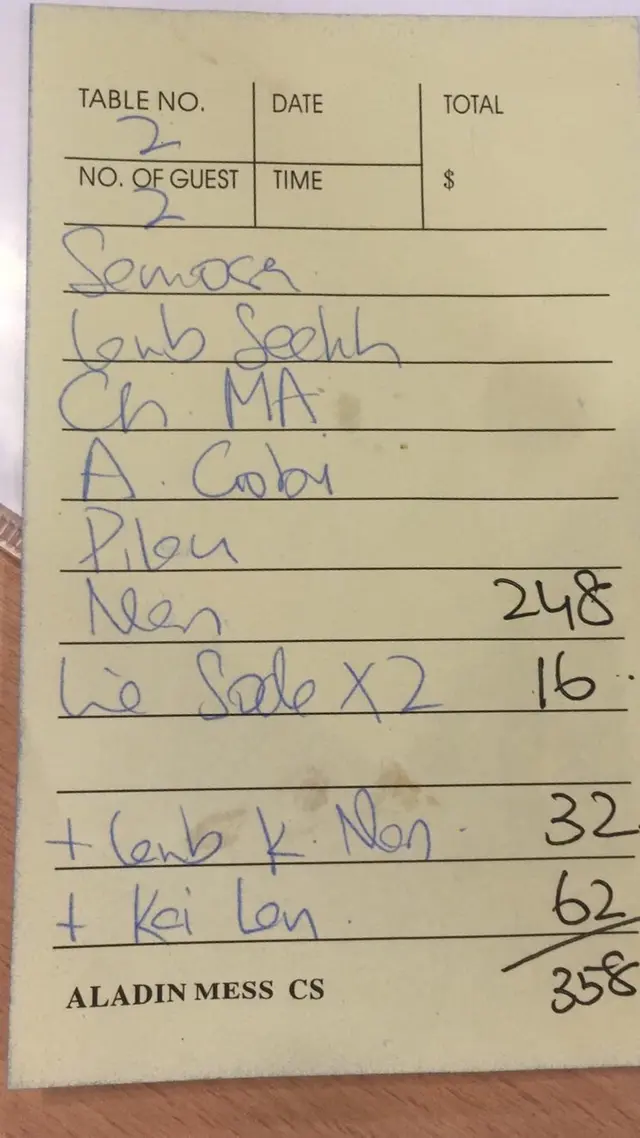 TABLE NO. DATE TOTAL
2
NO. OF GUEST TIME $
2
Semosa
Lemb Seekh
Ch. MA
A. Gobi
Pilau
Nan 248
Lie Sode X2 16
+ Lemb K. Nan 32
+ Kai Lan 62
358
ALADIN MESS CS